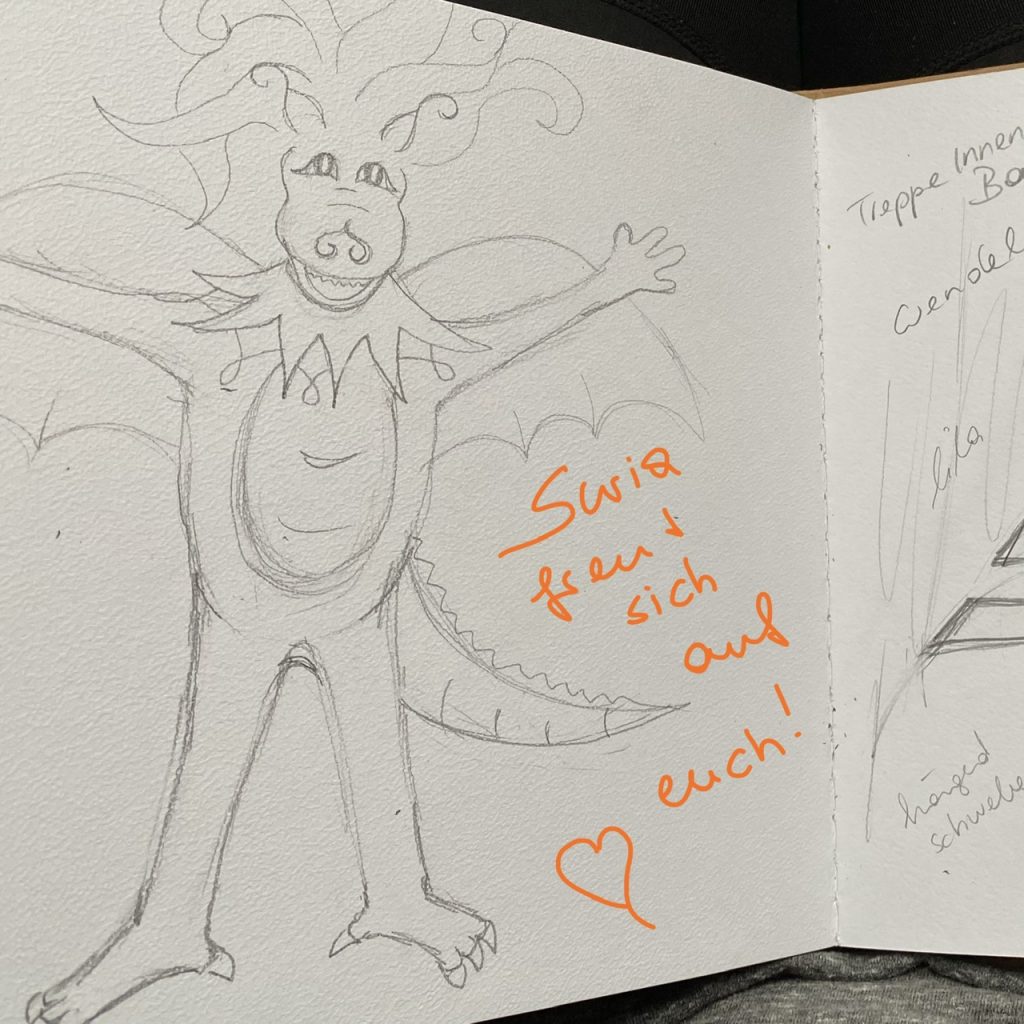 Suria
freut
sich
auf
euch!
Treppe Innen
wendel
lila
hängend
schwebe